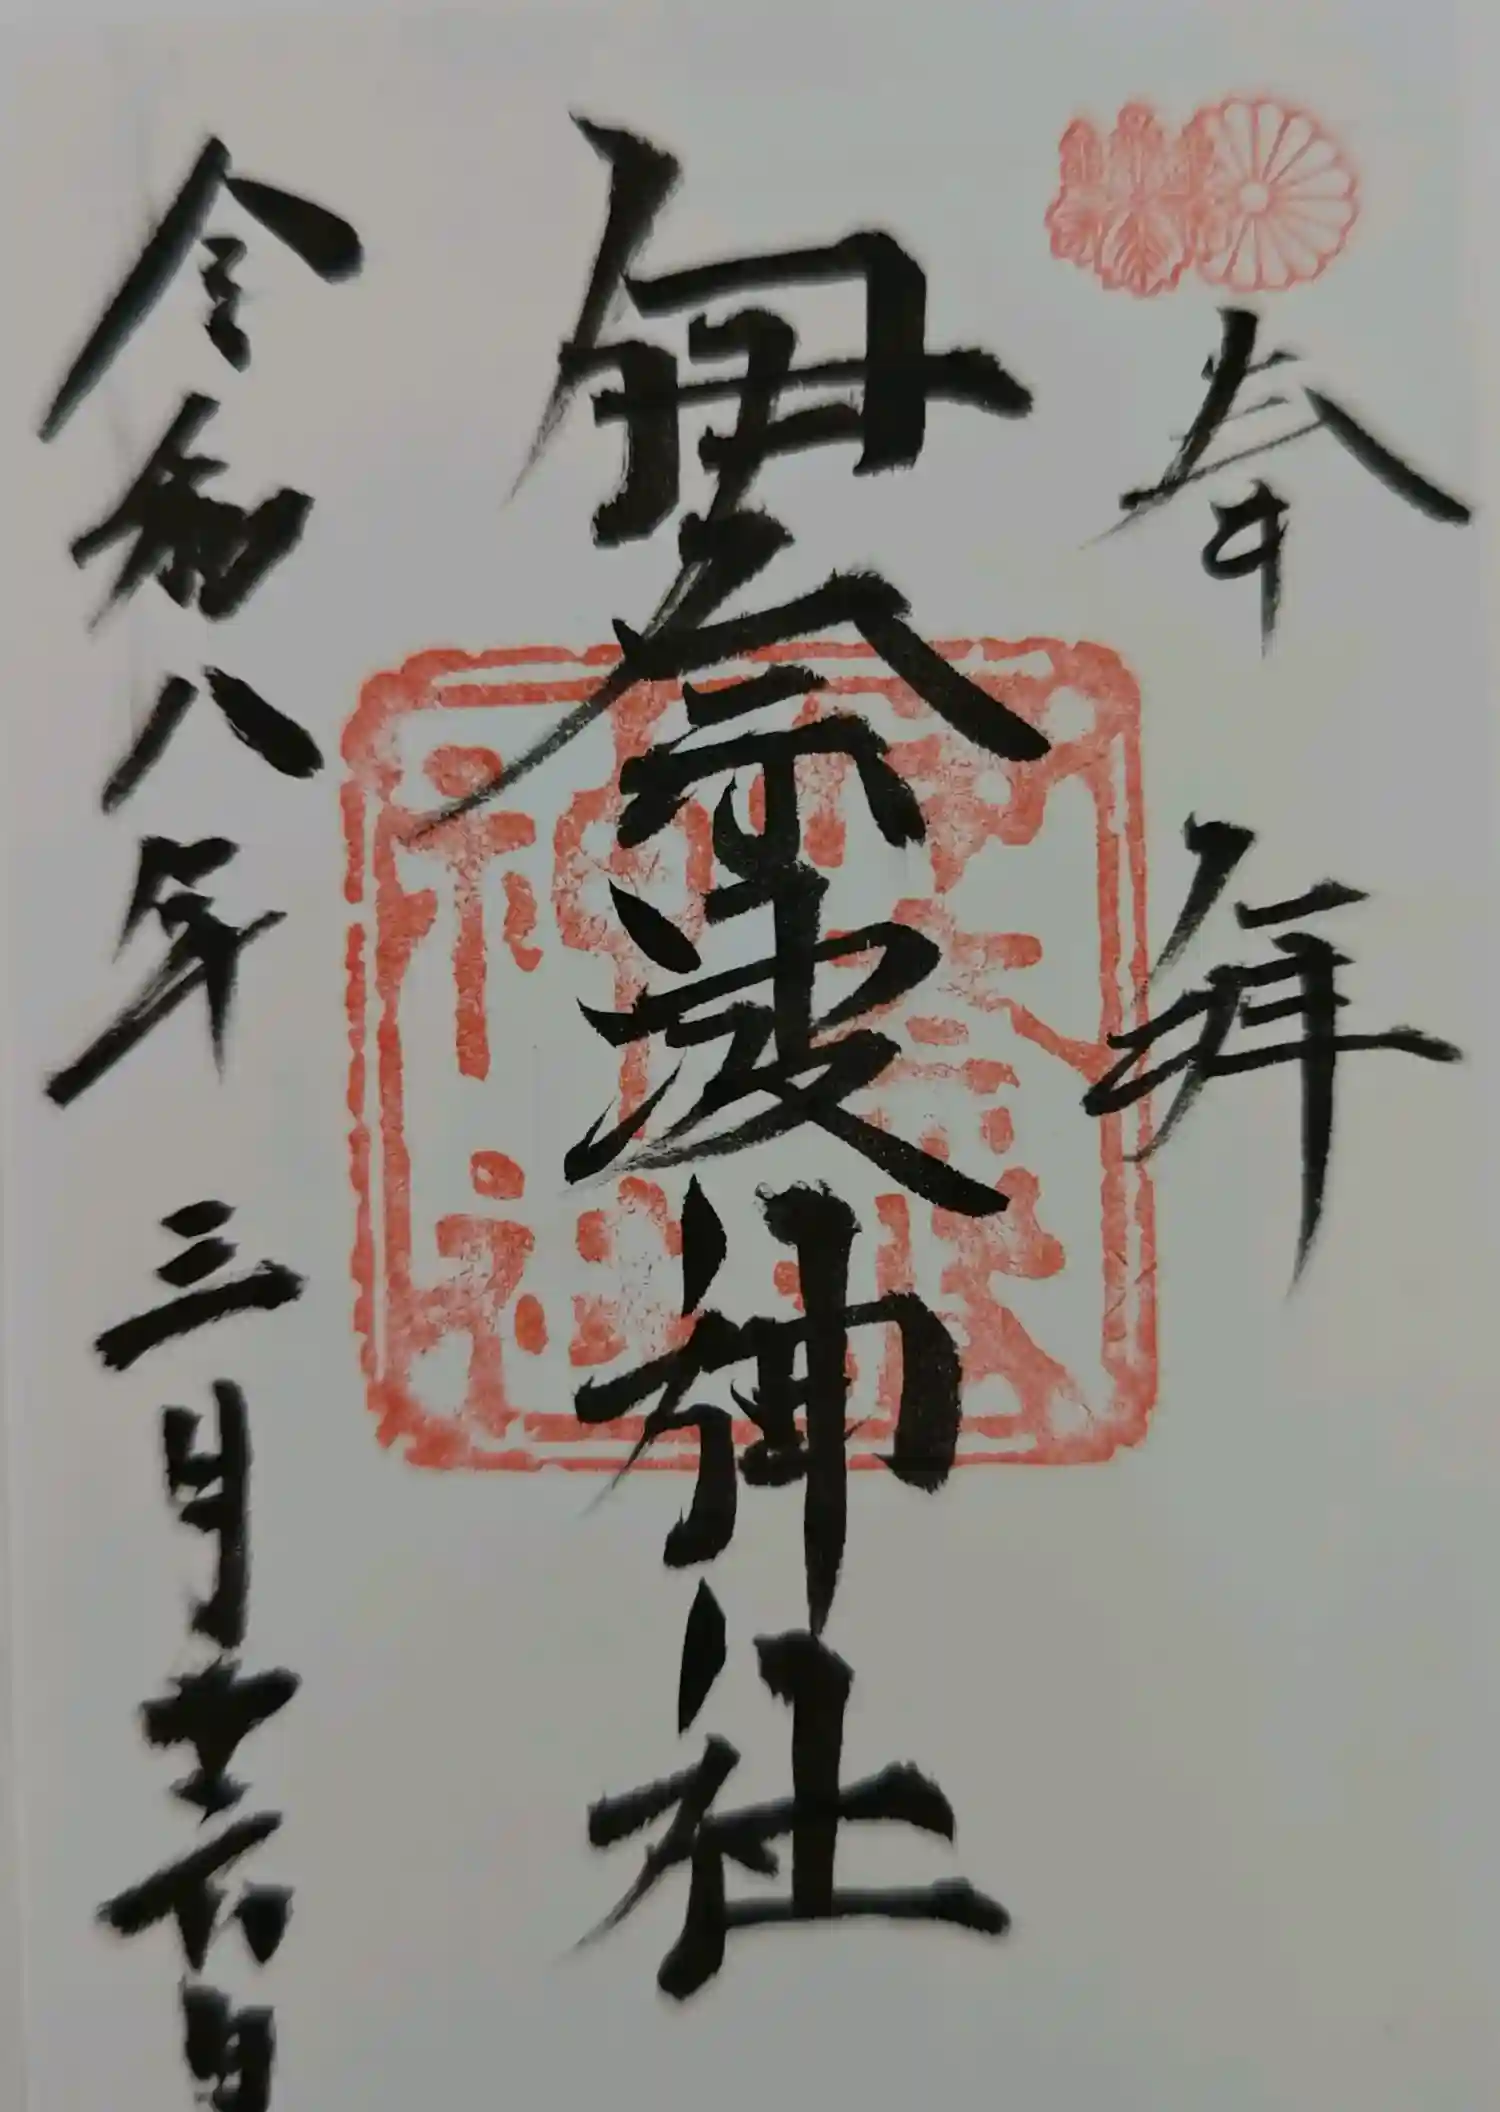 奉拝
伊奈波神社
伊奈波神社
令和八年三月十六日